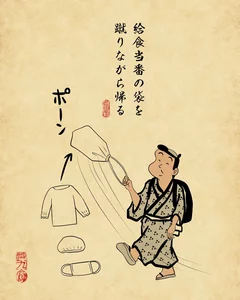 給食当番の袋を
蹴りながら帰る
ポーン